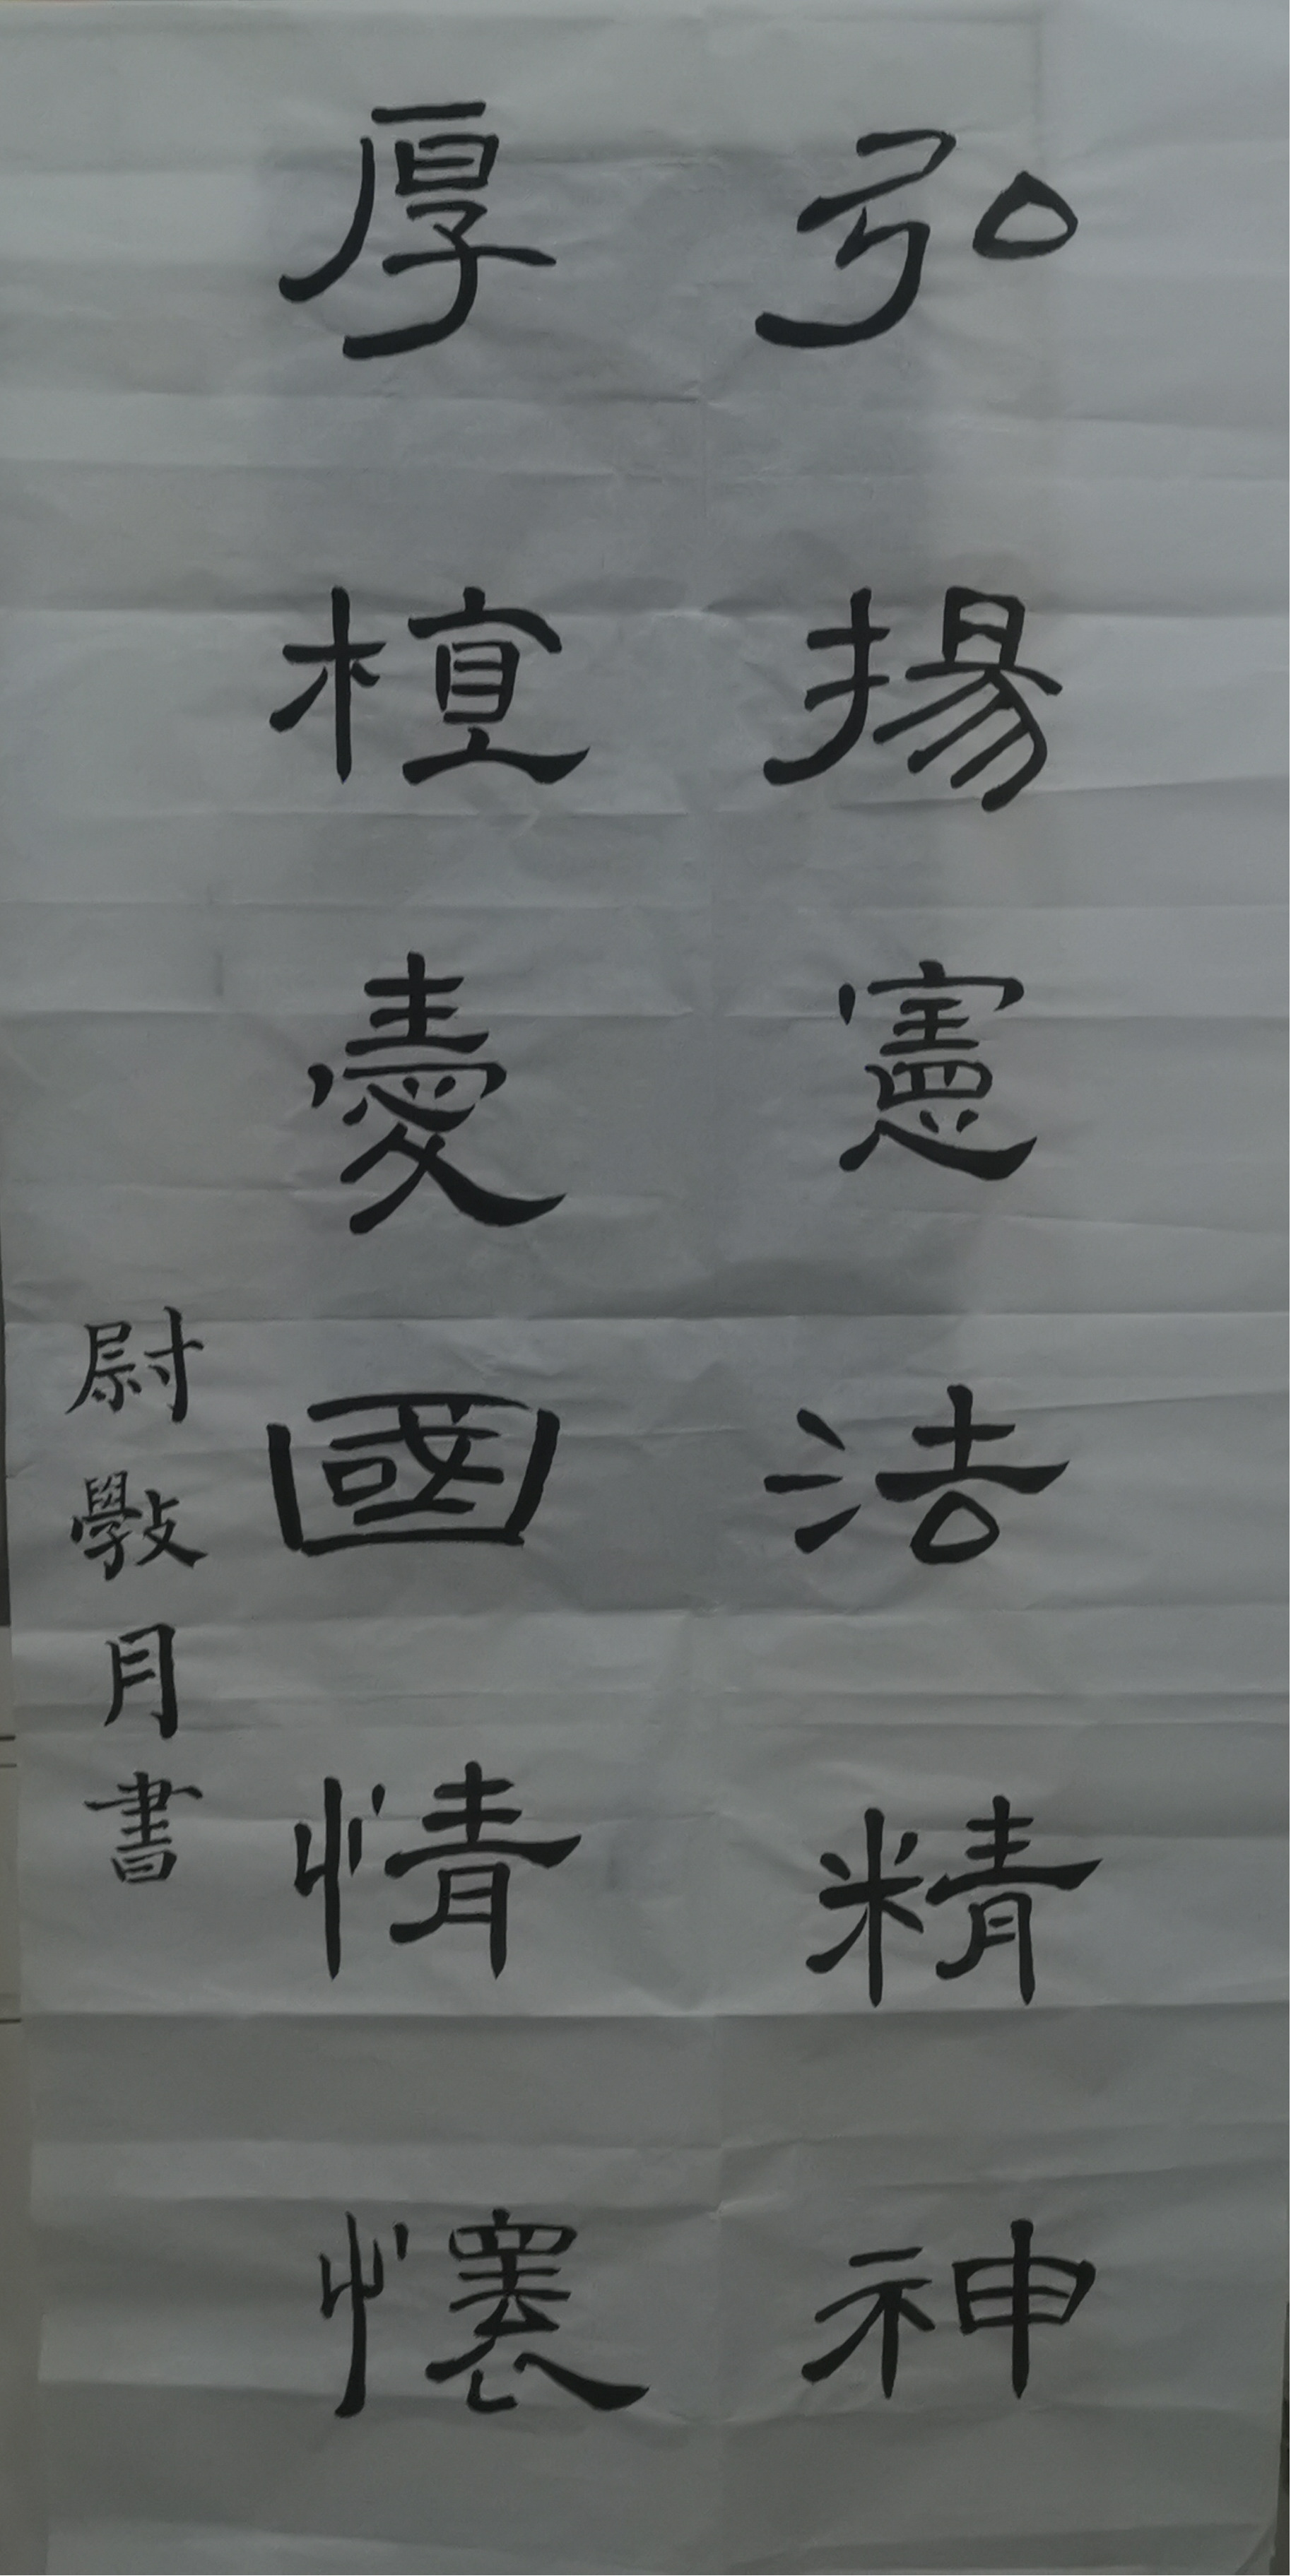 弘揚憲法精神
厚植愛國情懷
尉斆月書